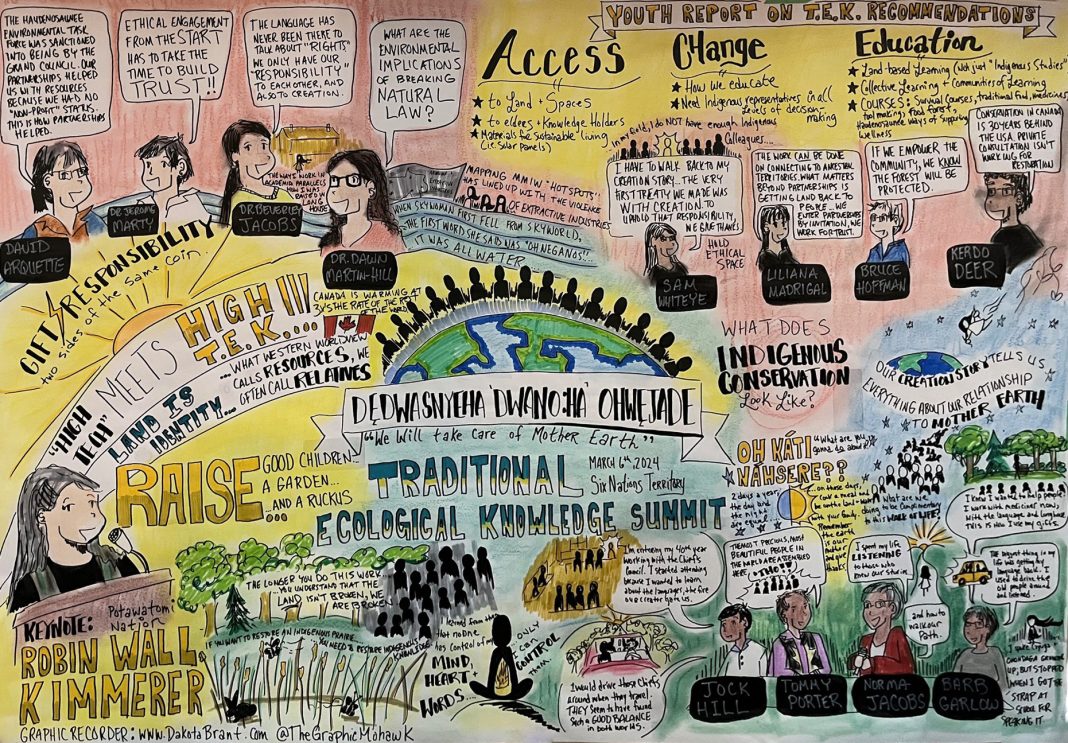 YOUTH REPORT ON T.E.K. RECOMMENDATIONS
THE HAUDENOSAUNEE
ENVIRONMENTAL TASK
FORCE WAS SANCTIONED
INTO BEING BY THE
GRAND COUNCIL. OUR
PARTNERSHIPS HELPED
US WITH RESOURCES
BECAUSE WE HAD NO
"NON-PROFIT" STATUS.
THIS IS HOW PARTNERSHIPS
HELPED.
ETHICAL ENGAGEMENT
FROM THE START
HAS TO TAKE THE
TIME TO BUILD
TRUST!!
THE LANGUAGE HAS
NEVER BEEN THERE TO
TALK ABOUT "RIGHTS"
WE ONLY HAVE OUR
"RESPONSIBILITY"
TO EACH OTHER, AND
ALSO TO CREATION.
WHAT ARE THE
ENVIRONMENTAL
IMPLICATIONS
OF BREAKING
NATURAL
LAW?
DAVID
ARQUETTE
DR. JEROME
MARTY
DR. BEVERLEY
JACOBS
DR. DAWN
MARTIN-HILL
THE WAYS WORK IN
ACADEMIA PARALLELS
HOW I WAS
RAISED IN
LONG
HOUSE
MAPPING MMIW "HOTSPOTS"
HAS LINED UP WITH THE VIOLENCE
OF EXTRACTIVE INDUSTRIES
WHEN SKYWOMAN FIRST FELL FROM SKYWORLD,
THE FIRST WORD SHE SAID WAS "OHNEGANOS"...
IT WAS ALL WATER...
Access
★ to Land + Spaces
★ to elders + Knowledge Holders
★ Materials for Sustainable living
(i.e. Solar panels)
CHange
★ How we educate
★ Need Indigenous representatives in all
levels of decision-
making
Education
★ Land-based Learning (Not just "Indigenous Studies")
★ Collective Learning + Communities of Learning
★ COURSES: Survival Courses, traditional Food, medicines,
tool making, Food Forest,
Haudenosaunee Ways of supporting
wellness
In my field, I do NOT have enough Indigenous
Colleagues....
I HAVE TO WALK BACK TO MY
CREATION STORY... THE VERY
FIRST TREATY WE MADE WAS
WITH CREATION. TO
UPHOLD THAT RESPONSIBILITY,
WE GIVE THANKS
HOLD
ETHICAL
SPACE
SAM
WHITEYE
THE WORK CAN BE DONE
ON CONNECTING TO ANCESTRAL
TERRITORIES. WHAT MATTERS
BEYOND PARTNERSHIPS IS
GETTING LAND BACK TO
PEOPLE. WE
ENTER PARTNERSHIPS
BY INVITATION, WE
WORK FOR TRUST.
LILIANA
MADRIGAL
IF WE EMPOWER THE
COMMUNITY, WE KNOW
THE FOREST WILL BE
PROTECTED.
BRUCE
HOFFMAN
CONSERVATION IN CANADA
IS 30 YEARS BEHIND
THE USA. PRIVATE
CONSULTATION ISN'T
WORKING FOR
RESTORATION
KERDO
DEER
GIFT / RESPONSIBILITY
two sides of the same coin.
"HIGH TECH" MEETS HIGH T.E.K. ...
LAND IS
IDENTITY...
CANADA IS WARMING AT
3X'S THE RATE OF THE REST
OF THE WORLD
...WHAT WESTERN WORLDVIEW
CALLS RESOURCES, WE
OFTEN CALL RELATIVES
DĘDWASNYEHA 'DWANO:HA' OHWĘJADE
"We Will take care of Mother Earth"
TRADITIONAL
MARCH 6TH, 2024
Six Nations Territory
ECOLOGICAL KNOWLEDGE SUMMIT
RAISE GOOD CHILDREN...
A GARDEN...
...AND A RUCKUS
WHAT DOES
INDIGENOUS
CONSERVATION
Look Like?
OUR CREATION STORY TELLS US
EVERYTHING ABOUT OUR RELATIONSHIP
TO MOTHER EARTH
OH KÁTI
NÁHSERE??
"What are you
gonna do about it"
2 days a year
the day and
the night
are equal...
on those days,
cook a meal and
be on the land + water
With your family.
Remember
the earth
is our
mother
and give
thanks.
What are we
doing to be complimentary
to this WALK OF LIFE?
KEYNOTE:
Potawatomi
Nation
ROBIN WALL
KIMMERER
THE LONGER YOU DO THIS WORK
...YOU UNDERSTAND THAT THE
LAND ISN'T BROKEN, WE
ARE BROKEN
IF YOU WANT TO RESTORE AN INDIGENOUS PRAIRIE...
YOU NEED to RESTORE INDIGENOUS
KNOWLEDGE
learned from them
that no one
has control of my
MIND,
HEART +
WORDS...
ONLY
I can
CONTROL
them
I'm entering my 40th year
working with the Chief's
Council. I started attending
because I wanted to learn
about the languages, the fire
our creator gave us.
I would drive those Chiefs
around when they travel.
THEY seem to have found
Such a GOOD BALANCE
in both worlds.
JOCK
HILL
THE MOST PRECIOUS, MOST
BEAUTIFUL PEOPLE IN
THE WORLD ARE ASSEMBLED
HERE,
TOMMY
PORTER
I spent my life
LISTENING
to those who
knew our stories.
and how to
walk our
Path.
NORMA
JACOBS
I know I wanted to help people.
I work with medicines now,
With the language and land too.
THIS IS HOW I use my gifts.
THE biggest thing in my
life was getting my
language back. I
used to drive the
old people around
and listened.
I spoke Cayuga
ONONDAGA GROWING
UP, BUT STOPPED
WHEN I GOT THE
STRAP AT
SCHOOL FOR
SPEAKING IT
BARB
GARLOW
GRAPHIC RECORDER: www.DakotaBrant.com @TheGraphicMohawk